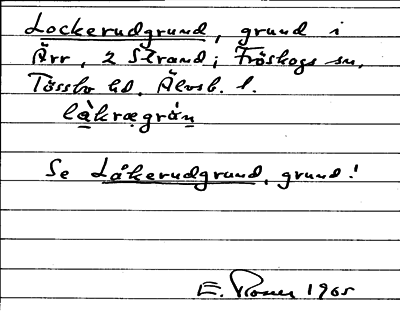 Lockerudgrund, grund i
Ärr, 2 Strand; Fröskogs sn,
Tössbo hd. Älvsb. l.
làkrægrón
Se Låkerudgrund, grund!
E. 1965